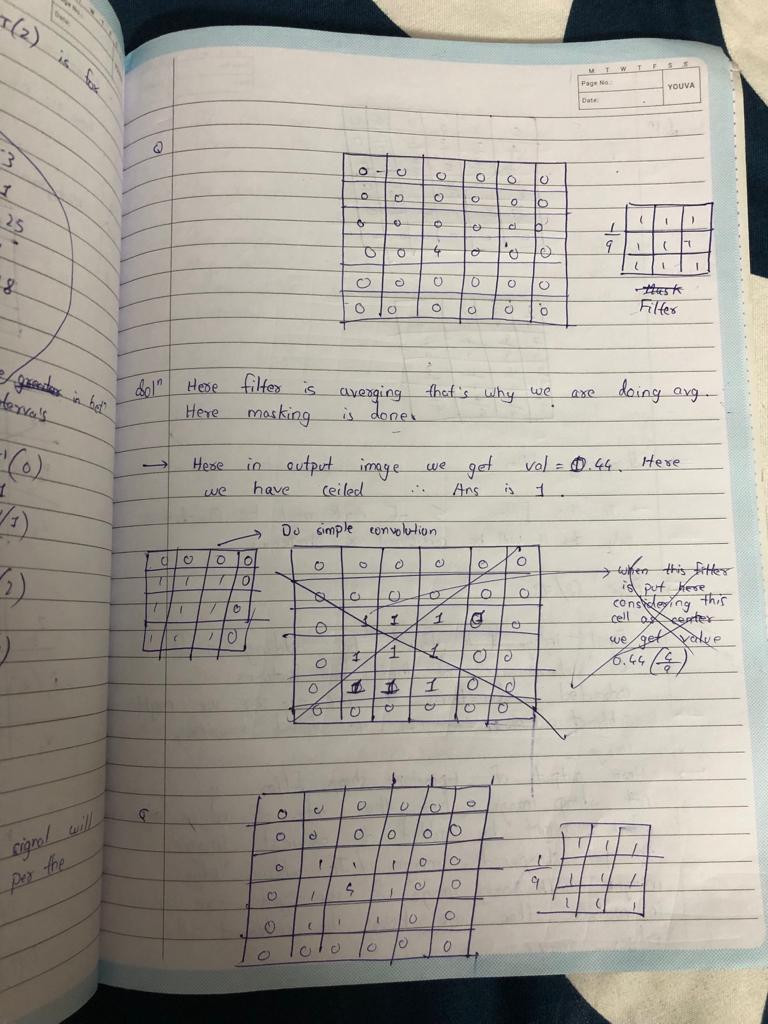 I(2) is for
3
1
25
8
greater in both
intervals
(0)
1
/1)
/2)
)
signal will
per the
M T W T F S S
Page No.:
Date:
YOUVA
Q
0 0 0 0 0 0
0 0 0 0 0 0
0 0 0 0 0 0
0 0 4 0 0 0
0 0 0 0 0 0
0 0 0 0 0 0
1/9
1 1 1
1 1 1
1 1 1
Mask
Filter
Solⁿ Here filter is averging that's why we are doing avg.
Here masking is done.
→ Here in output image we get val = 0.44. Here
we have ceiled ∴ Ans is 1.
→ Do simple convolution
0 0 0 0
1 1 1 0
1 1 1 0
1 1 1 0
0 0 0 0 0 0
0 0 0 0 0 0
0 1 1 1 0 0
0 1 1 1 0 0
0 1 1 1 0 0
0 0 0 0 0 0
→ when this filter
is put here
considering this
cell as center
we get value
0.44 (4/9)
Q
0 0 0 0 0 0
0 0 0 0 0 0
0 1 1 1 0 0
0 1 1 0 0
0 1 1 1 0 0
0 0 0 0 0 0
1/9
1 1 1
1 1 1
1 1 1